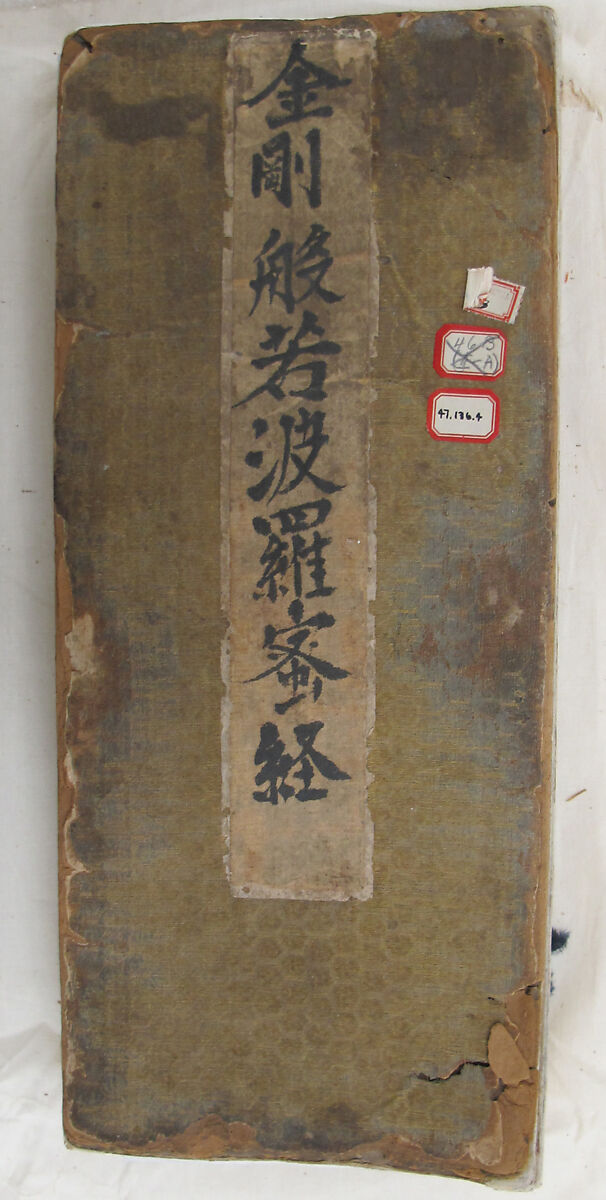 金剛般若波羅蜜経
46B
47.136.4